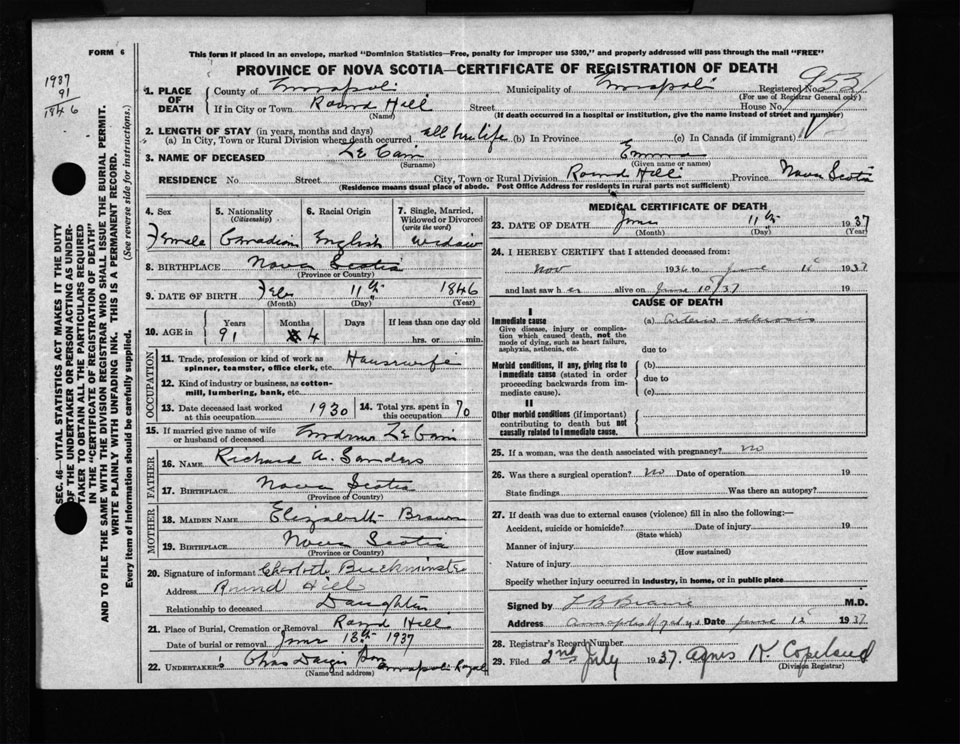 FORM 6
This form if placed in an envelope, marked "Dominion Statistics—Free, penalty for improper use $300," and properly addressed will pass through the mail "FREE"
PROVINCE OF NOVA SCOTIA—CERTIFICATE OF REGISTRATION OF DEATH
1937
91
1846
953
SEC. 46—VITAL STATISTICS ACT MAKES IT THE DUTY
OF THE UNDERTAKER OR PERSON ACTING AS UNDER-
TAKER TO OBTAIN ALL THE PARTICULARS REQUIRED
IN THE "CERTIFICATE OF REGISTRATION OF DEATH"
AND TO FILE THE SAME WITH THE DIVISION REGISTRAR WHO SHALL ISSUE THE BURIAL PERMIT.
WRITE PLAINLY WITH UNFADING INK. THIS IS A PERMANENT RECORD.
Every item of Information should be carefully supplied. (See reverse side for instructions.)
1. PLACE OF DEATH
County of Annapolis Municipality of Annapolis Registered No.
(For use of Registrar General only)
If in City or Town Round Hill Street House No.
(Name) (If death occurred in a hospital or institution, give the name instead of street and number)
2. LENGTH OF STAY (in years, months and days)
(a) In City, Town or Rural Division where death occurred all her life (b) In Province (c) In Canada (if immigrant)
3. NAME OF DECEASED Le Cain Emma
(Surname) (Given name or names)
RESIDENCE No. Street City, Town or Rural Division Round Hill Province Nova Scotia
(Residence means usual place of abode. Post Office Address for residents in rural parts not sufficient)
4. Sex 5. Nationality (Citizenship) 6. Racial Origin 7. Single, Married, Widowed or Divorced (write the word)
Female Canadian English Widow
8. BIRTHPLACE Nova Scotia
(Province or Country)
9. DATE OF BIRTH Feb 11th 1846
(Month) (Day) (Year)
10. AGE in Years Months Days If less than one day old
91 4 hrs. or min.
OCCUPATION
11. Trade, profession or kind of work as spinner, teamster, office clerk, etc. Housewife
12. Kind of industry or business, as cotton-mill, lumbering, bank, etc.
13. Date deceased last worked at this occupation 1930 14. Total yrs. spent in this occupation 70
15. If married give name of wife or husband of deceased Le Cain
FATHER
16. NAME Richard A. Sanders
17. BIRTHPLACE Nova Scotia
(Province or Country)
MOTHER
18. MAIDEN NAME Elizabeth Brown
19. BIRTHPLACE Nova Scotia
(Province or Country)
20. Signature of informant Charlotte Buckminster
Address Round Hill
Relationship to deceased Daughter
21. Place of Burial, Cremation or Removal Round Hill
Date of burial or removal June 13th 1937
22. UNDERTAKER: Chas Annapolis Royal
(Name and address)
MEDICAL CERTIFICATE OF DEATH
23. DATE OF DEATH June 11th 1937
(Month) (Day) (Year)
24. I HEREBY CERTIFY that I attended deceased from:
Nov 1936 to June 1937
and last saw her alive on June 10/37
CAUSE OF DEATH
I
Immediate cause (a) Arterio-sclerosis
Give disease, injury or complication which caused death, not the mode of dying, such as heart failure, asphyxia, asthenia, etc.
due to
Morbid conditions, if any, giving rise to immediate cause (stated in order proceeding backwards from immediate cause).
(b)
due to
(c)
II
Other morbid conditions (if important) contributing to death but not causally related to immediate cause.
25. If a woman, was the death associated with pregnancy? no
26. Was there a surgical operation? no Date of operation 19
State findings Was there an autopsy?
27. If death was due to external causes (violence) fill in also the following:—
Accident, suicide or homicide? Date of injury 19
(State which)
Manner of injury
(How sustained)
Nature of injury
Specify whether injury occurred in industry, in home, or in public place
Signed by M.D.
Address Date June 12 1937
28. Registrar's Record Number
29. Filed 2nd July 1937. Agnes K Copeland
(Division Registrar)